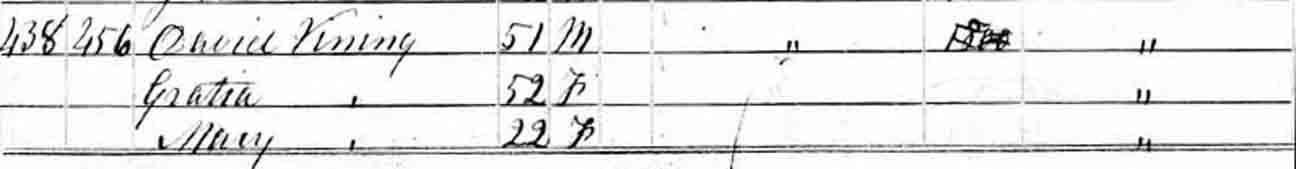 438 456 David Vining 51 M " "
Gratia " 52 F "
Mary " 22 F "